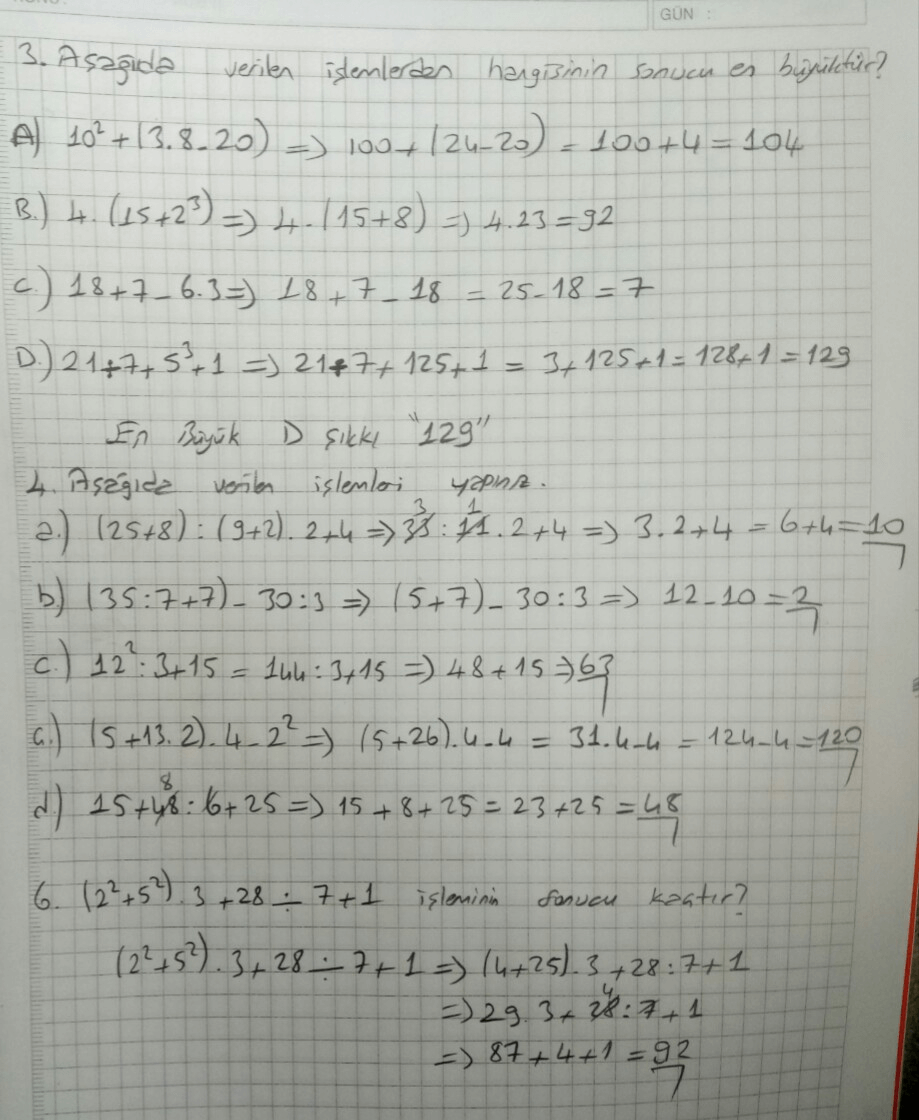 GÜN :
3. Aşağıda verilen işlemlerden hangisinin sonucu en büyüktür?
A) 10² + (3.8-20) => 100+(24-20) = 100+4 = 104
B.) 4.(15+2³) => 4.(15+8) => 4.23 = 92
C.) 18+7-6.3 => 18+7-18 = 25-18 = 7
D.) 21÷7+5³+1 => 21÷7+125+1 = 3+125+1 = 128+1 = 129
En Büyük D şıkkı "129"
4. Aşağıda verilen işlemleri yapınız.
a.) (25+8):(9+2).2+4 => 33:11.2+4 => 3.2+4 = 6+4 = 10
b) (35:7+7)-30:3 => (5+7)-30:3 => 12-10 = 2
c.) 12²:3+15 = 144:3+15 => 48+15 => 63
ç.) (5+13.2).4-2² => (5+26).4-4 = 31.4-4 = 124-4 = 120
d) 15+48:6+25 => 15+8+25 = 23+25 = 48
6. (2²+5²).3+28÷7+1 işleminin sonucu kaçtır?
(2²+5²).3+28÷7+1 => (4+25).3+28:7+1
=> 29.3+28:7+1
=> 87+4+1 = 92